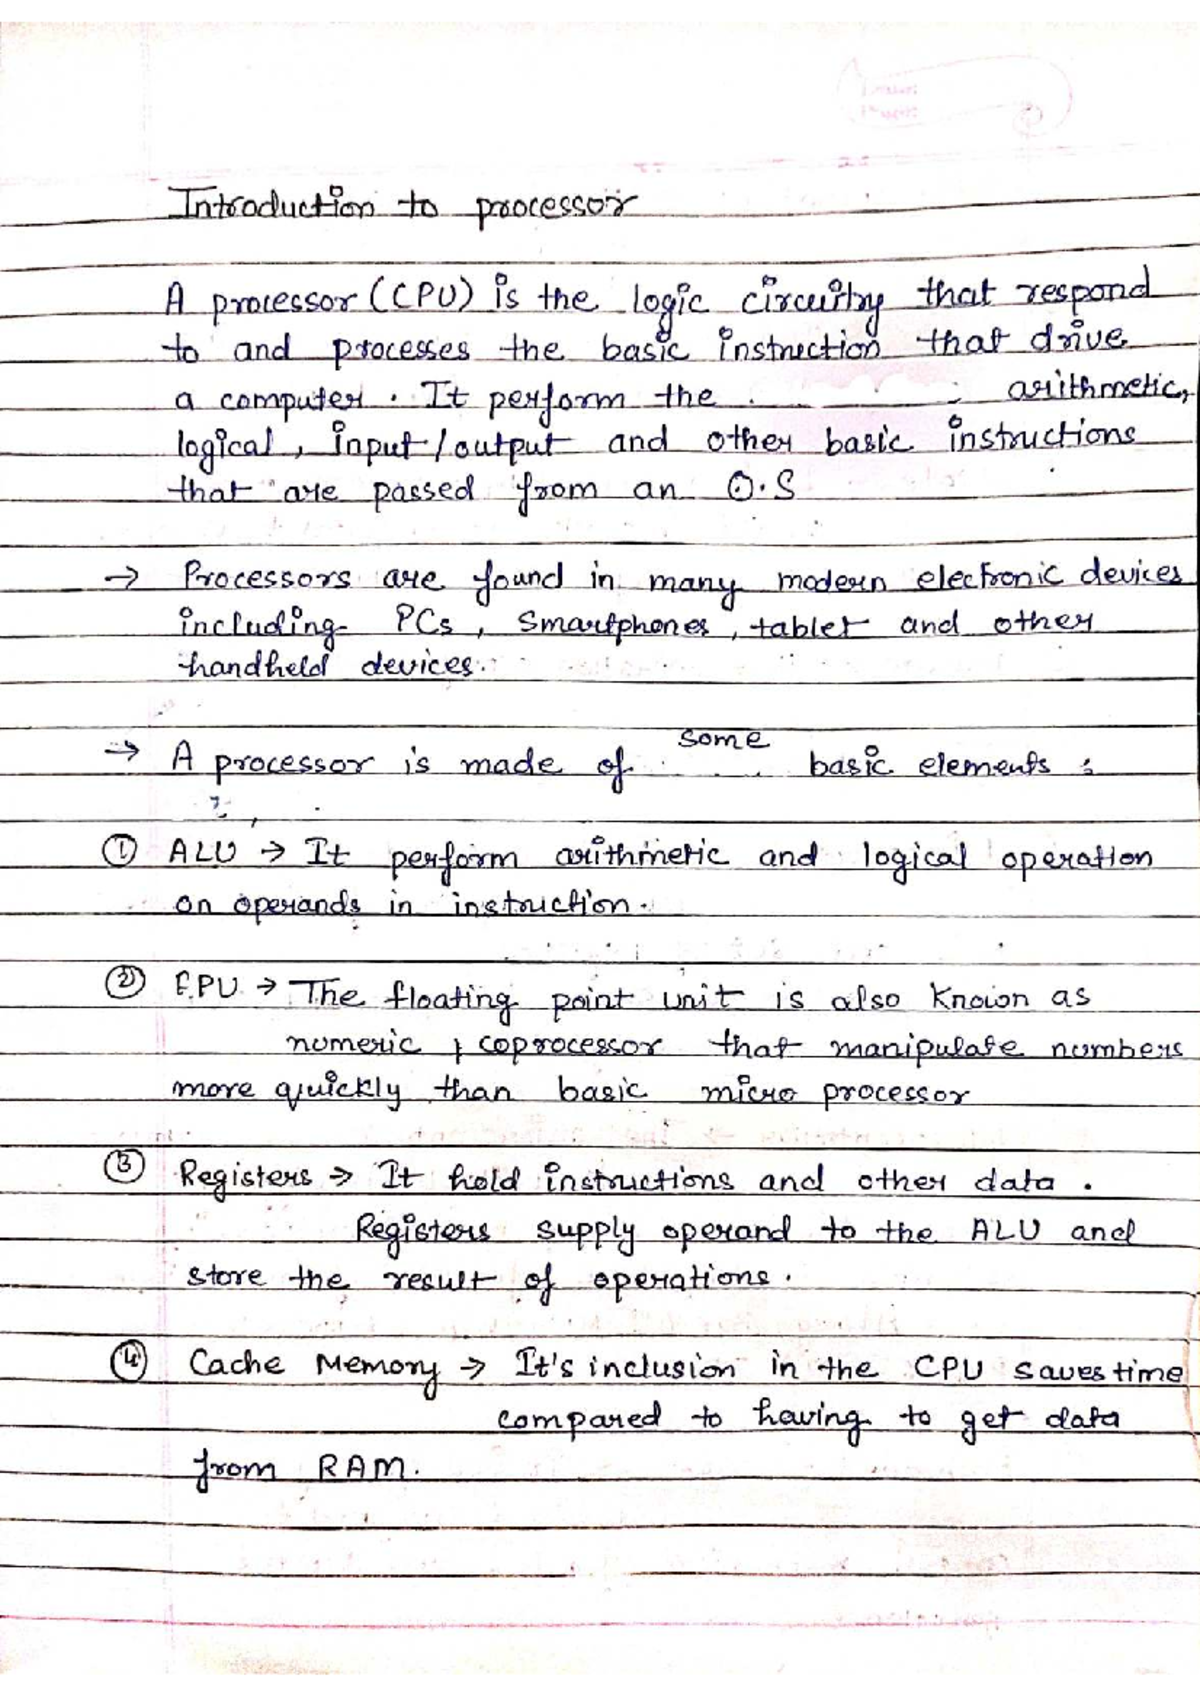 Introduction to processor
A processor (CPU) is the logic circuitry that respond
to and processes the basic instruction that drive
a computer. It perform the arithmetic,
logical, input/output and other basic instructions
that are passed from an O.S
→ Processors are found in many modern electronic devices
including PCs, Smartphones, tablet and other
handheld devices.
→ A processor is made of some basic elements :
① ALU → It perform arithmetic and logical operation
on operands in instruction.
② FPU → The floating point unit is also known as
numeric coprocessor that manipulate numbers
more quickly than basic micro processor
③ Registers → It hold instructions and other data.
Registers supply operand to the ALU and
store the result of operations.
④ Cache Memory → It's inclusion in the CPU saves time
compared to having to get data
from RAM.